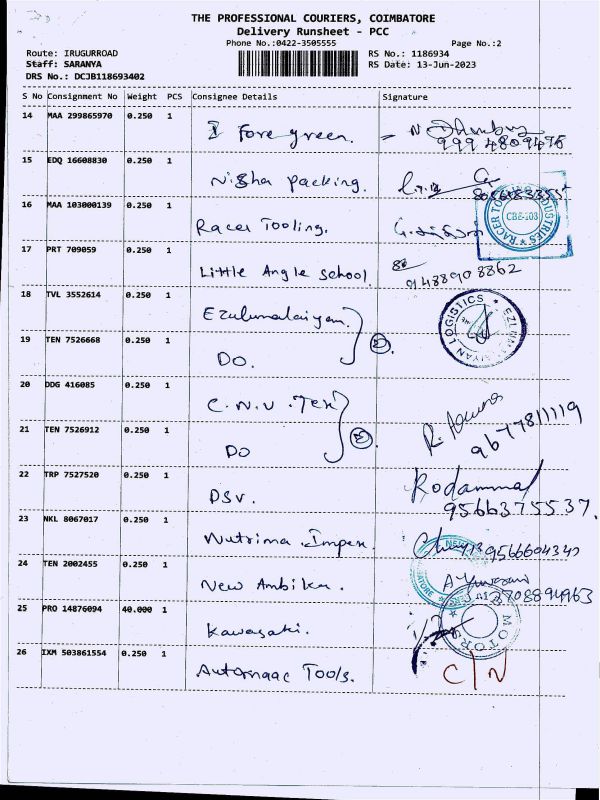 THE PROFESSIONAL COURIERS, COIMBATORE
Delivery Runsheet - PCC
Phone No.:0422-3505555 Page No.:2
Route: IRUGURROAD RS No.: 1186934
Staff: SARANYA RS Date: 13-Jun-2023
DRS No.: DCJB118693402
S No Consignment No Weight PCS Consignee Details Signature
14 MAA 299865970 0.250 1
I Fore green. 999 4809476
15 EDQ 16608830 0.250 1
Nisha packing.
16 MAA 103000139 0.250 1
Racer Tooling. RACER TOOLING INDUSTRIES CBE-103
17 PRT 709059 0.250 1
Little Angle school. 9488908862
18 TVL 3552614 0.250 1
Ezhumalaiyan. LOGISTICS
19 TEN 7526668 0.250 1
Do. ②.
20 DDG 416085 0.250 1
C.N.V.Tex
21 TEN 7526912 0.250 1
Do ②. 9677811119
22 TRP 7527520 0.250 1
DSV. 9566375537.
23 NKL 8067017 0.250 1
Nutrima Impex. 9566604340
24 TEN 2002455 0.250 1
New Ambika. 2708894963
25 PRO 14876094 40.000 1
Kawasaki. MOTORS
26 IXM 503861554 0.250 1
Automaac Tools. C/N